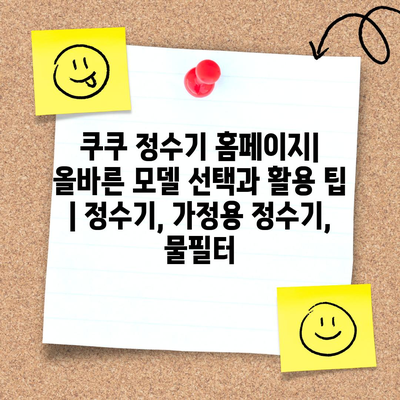 쿠쿠 정수기 홈페이지|
올바른 모델 선택과 활용 팁
| 정수기, 가정용 정수기,
물필터